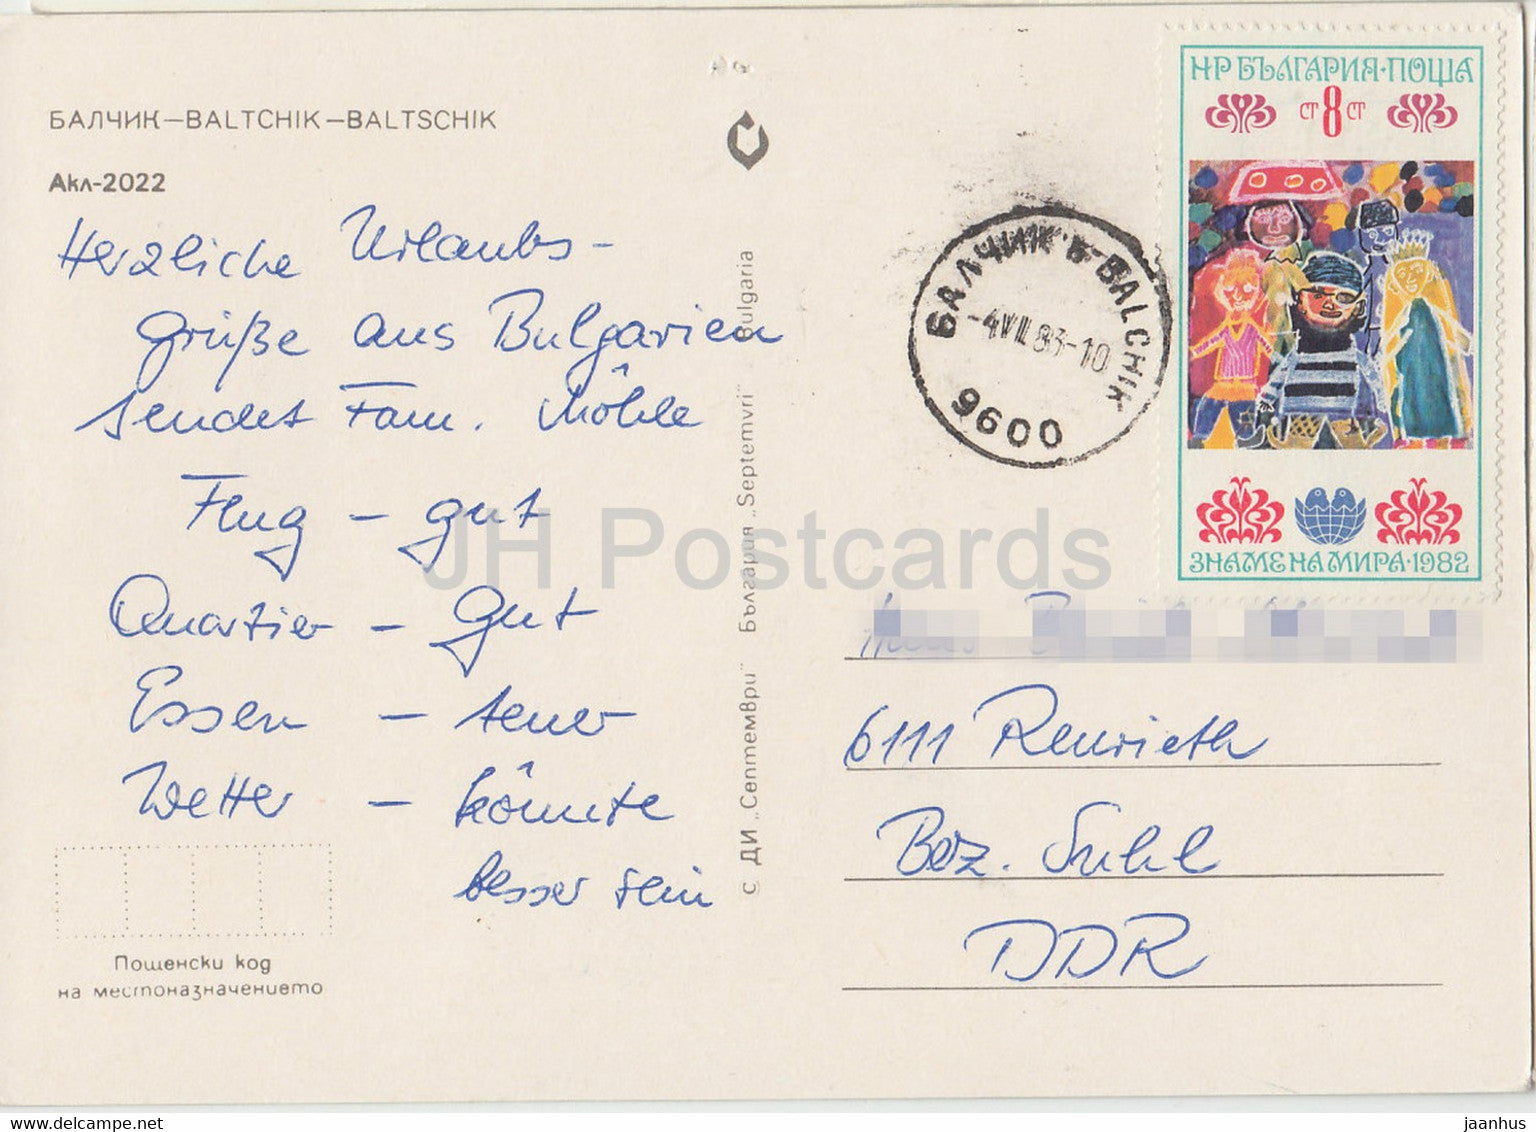 БАЛЧИК—BALTCHIK—BALTSCHIK
Акл-2022
Herzliche Urlaubs-
grüße aus Bulgarien
sendet Fam. Möhle
Flug – gut
Quartier – gut
Essen – teuer
Wetter – könnte
besser sein
Пощенски код
на местоназначението
с ДИ „Септември" България „Septemvri" Bulgaria
НР БЪЛГАРИЯ·ПОЩА
СТ 8 СТ
ЗНАМЕ НА МИРА·1982
БАЛЧИК BALCHIK
-4 VII 83-10
9600
6111 Reurieth
Bez. Suhl
DDR
JH Postcards
delcampe.net
jaanhus